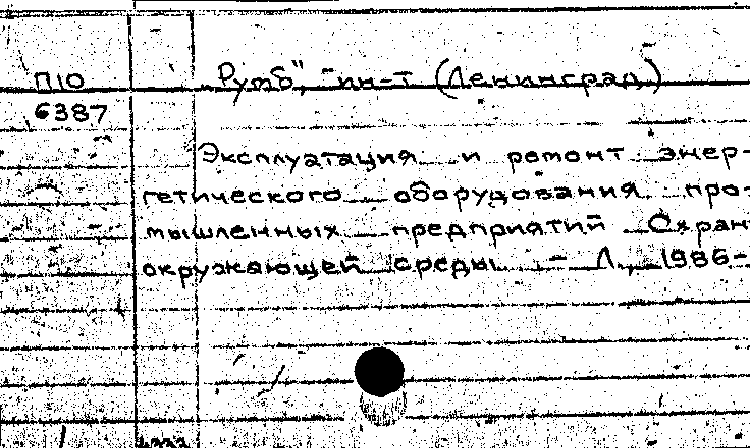 П10 „Румб", -ин-т (Ленинград)
6387
Эксплуатация и ремонт энер-
гетического оборудования про-
мышленных предприятий Охран
окружающей среды. - Л., 1986-